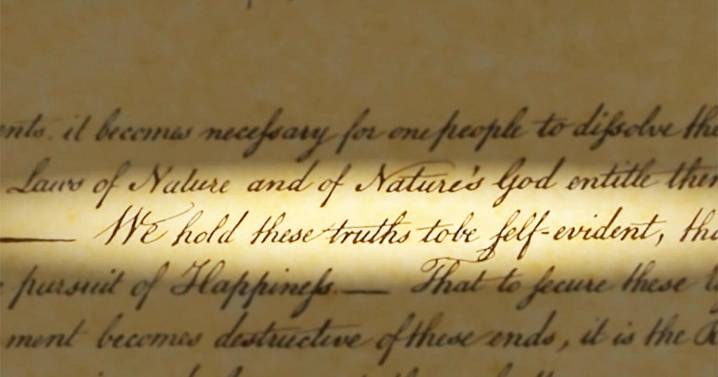 ents it becomes neceſsary for one people to diſsolve the
Laws of Nature and of Nature's God entitle them
We hold these truths to be ſelf-evident, tha
pursuit of Happineſs. — That to ſecure these
ment becomes destructive of these ends, it is the